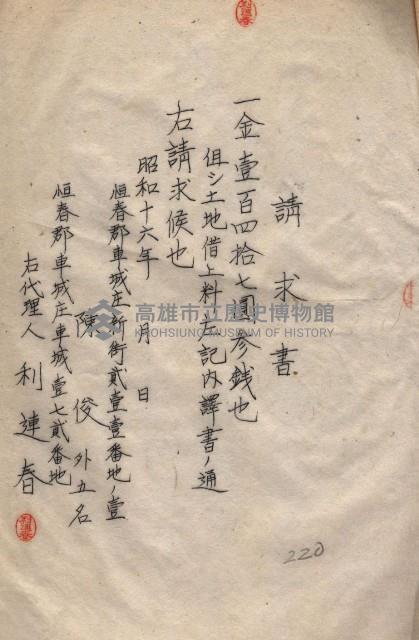 請求書
一金壹百四拾七圓參銭也
但シ土地借上料左記内譯書ノ通
右請求候也
昭和十六年 月 日
恒春郡車城庄新街貳壹壹番地ノ壹
陳俊 外五名
恒春郡車城庄車城壹七貳番地
右代理人 利連春
利連春
利連春
220
高雄市立歷史博物館
KAOHSIUNG MUSEUM OF HISTORY